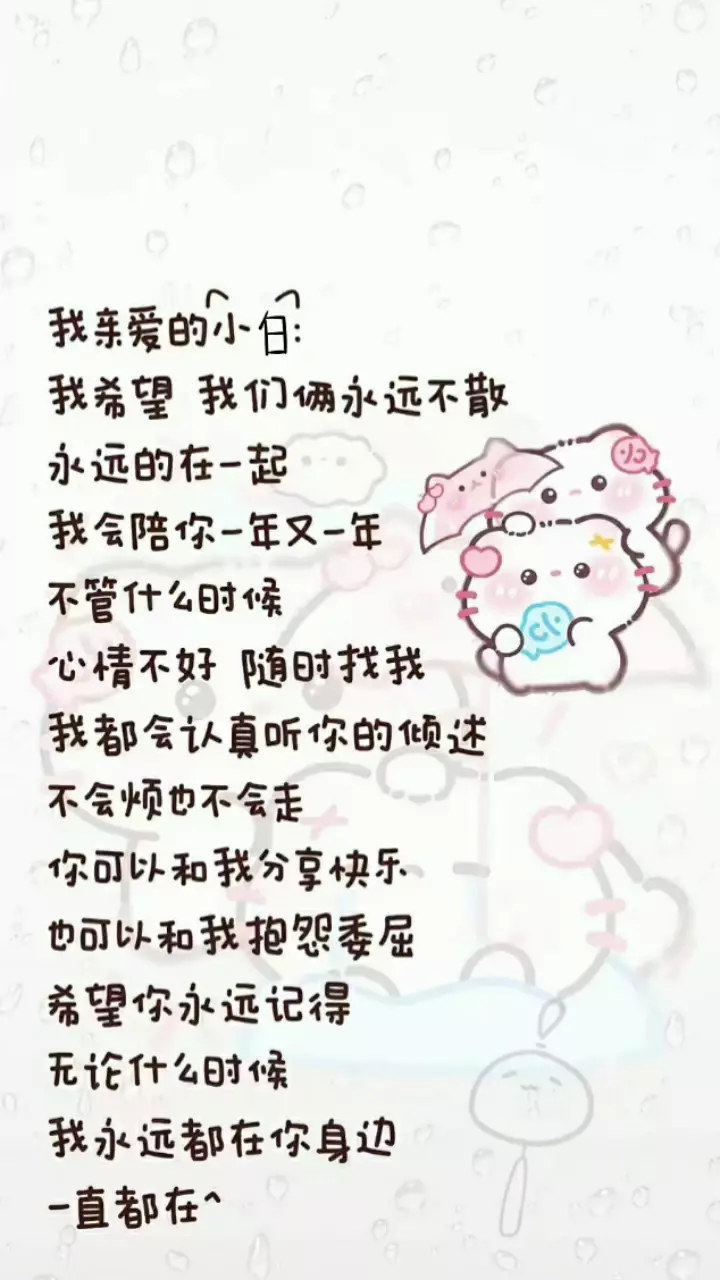 我亲爱的小白:
我希望 我们俩永远不散
永远的在一起
我会陪你一年又一年
不管什么时候
心情不好 随时找我
我都会认真听你的倾述
不会烦也不会走
你可以和我分享快乐
也可以和我抱怨委屈
希望你永远记得
无论什么时候
我永远都在你身边
一直都在^